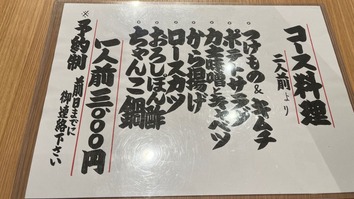 コース料理
二人前より
つけもの&キムチ
ポテトサラダ
カキ味噌とキャベツ
から揚げ
ロースカツ
おろしぽん酢
ちゃんこ鍋
一人前三〇〇〇円
※予約制
前日までに
御連絡下さい